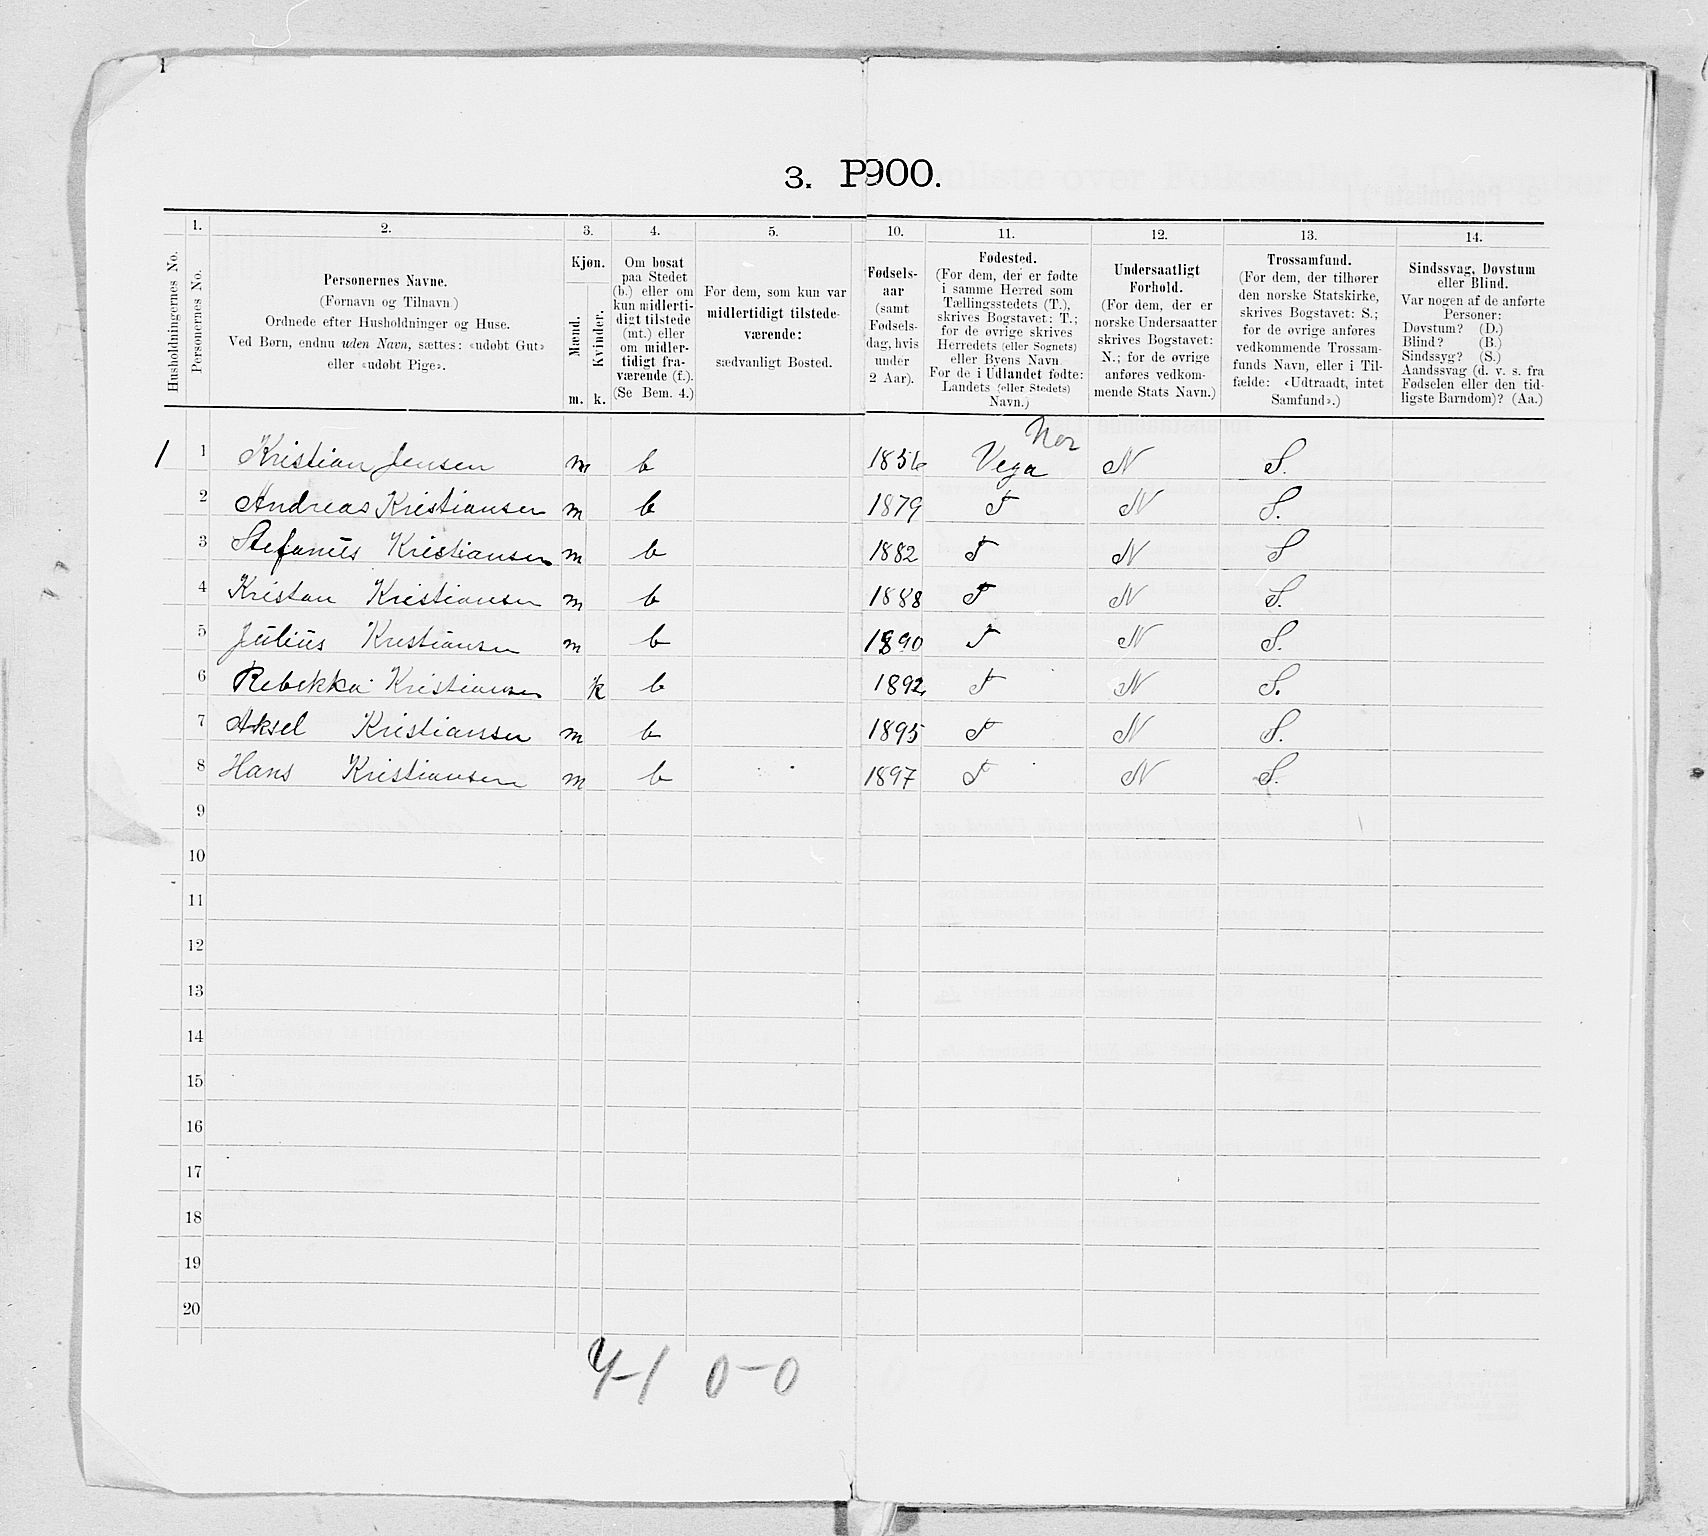 3. P900.
Husholdningernes No.
1.
Personernes No.
2.
Personernes Navne.
(Fornavn og Tilnavn)
Ordnede efter Husholdninger og Huse.
Ved Børn, endnu uden Navn, sættes: «udøbt Gut»
eller «udøbt Pige».
3.
Kjøn.
Mænd.
Kvinder.
m. k.
4.
Om bosat
paa Stedet
(b.) eller om
kun midlerti-
digt tilstede
(mt.) eller
om midler-
tidigt fra-
værende (f.).
(Se Bem. 4.)
5.
For dem, som kun var
midlertidigt tilstede-
værende:
sædvanligt Bosted.
10.
Fødsels-
aar
(samt
Fødsels-
dag, hvis
under
2 Aar).
11.
Fødested.
(For dem, der er fødte
i samme Herred som
Tællingsstedets (T.),
skrives Bogstavet: T.;
for de øvrige skrives
Herredets (eller Sognets)
eller Byens Navn
For de i Udlandet fødte:
Landets (eller Stedets)
Navn.)
12.
Undersaatligt
Forhold.
(For dem, der er
norske Undersaatter
skrives Bogstavet:
N.; for de øvrige
anføres vedkom-
mende Stats Navn.)
13.
Trossamfund.
(For dem, der tilhører
den norske Statskirke,
skrives Bogstavet: S.;
for de øvrige anføres
vedkommende Trossam-
funds Navn, eller i Til-
fælde: «Udtraadt, intet
Samfund».)
14.
Sindssvag, Døvstum
eller Blind.
Var nogen af de anførte
Personer:
Døvstum? (D.)
Blind? (B.)
Sindssyg? (S.)
Aandssvag (d. v. s. fra
Fødselen eller den tid-
ligste Barndom)? (Aa.)
Nor
1 1 Kristian Jensen m b 1856 Vega N S.
2 Andreas Kristiansen m b 1879 T N S.
3 Stefanus Kristiansen m b 1882 T N S
4 Kristan Kristiansen m b 1888 T N S.
5 Julius Kristiansen m b 1890 T N S.
6 Rebekka Kristiansen k b 1892 T N S.
7 Aksel Kristiansen m b 1895 T N S.
8 Hans Kristiansen m b 1897 T N S.
9
10
11
12
13
14
15
16
17
18
19
20
0-0